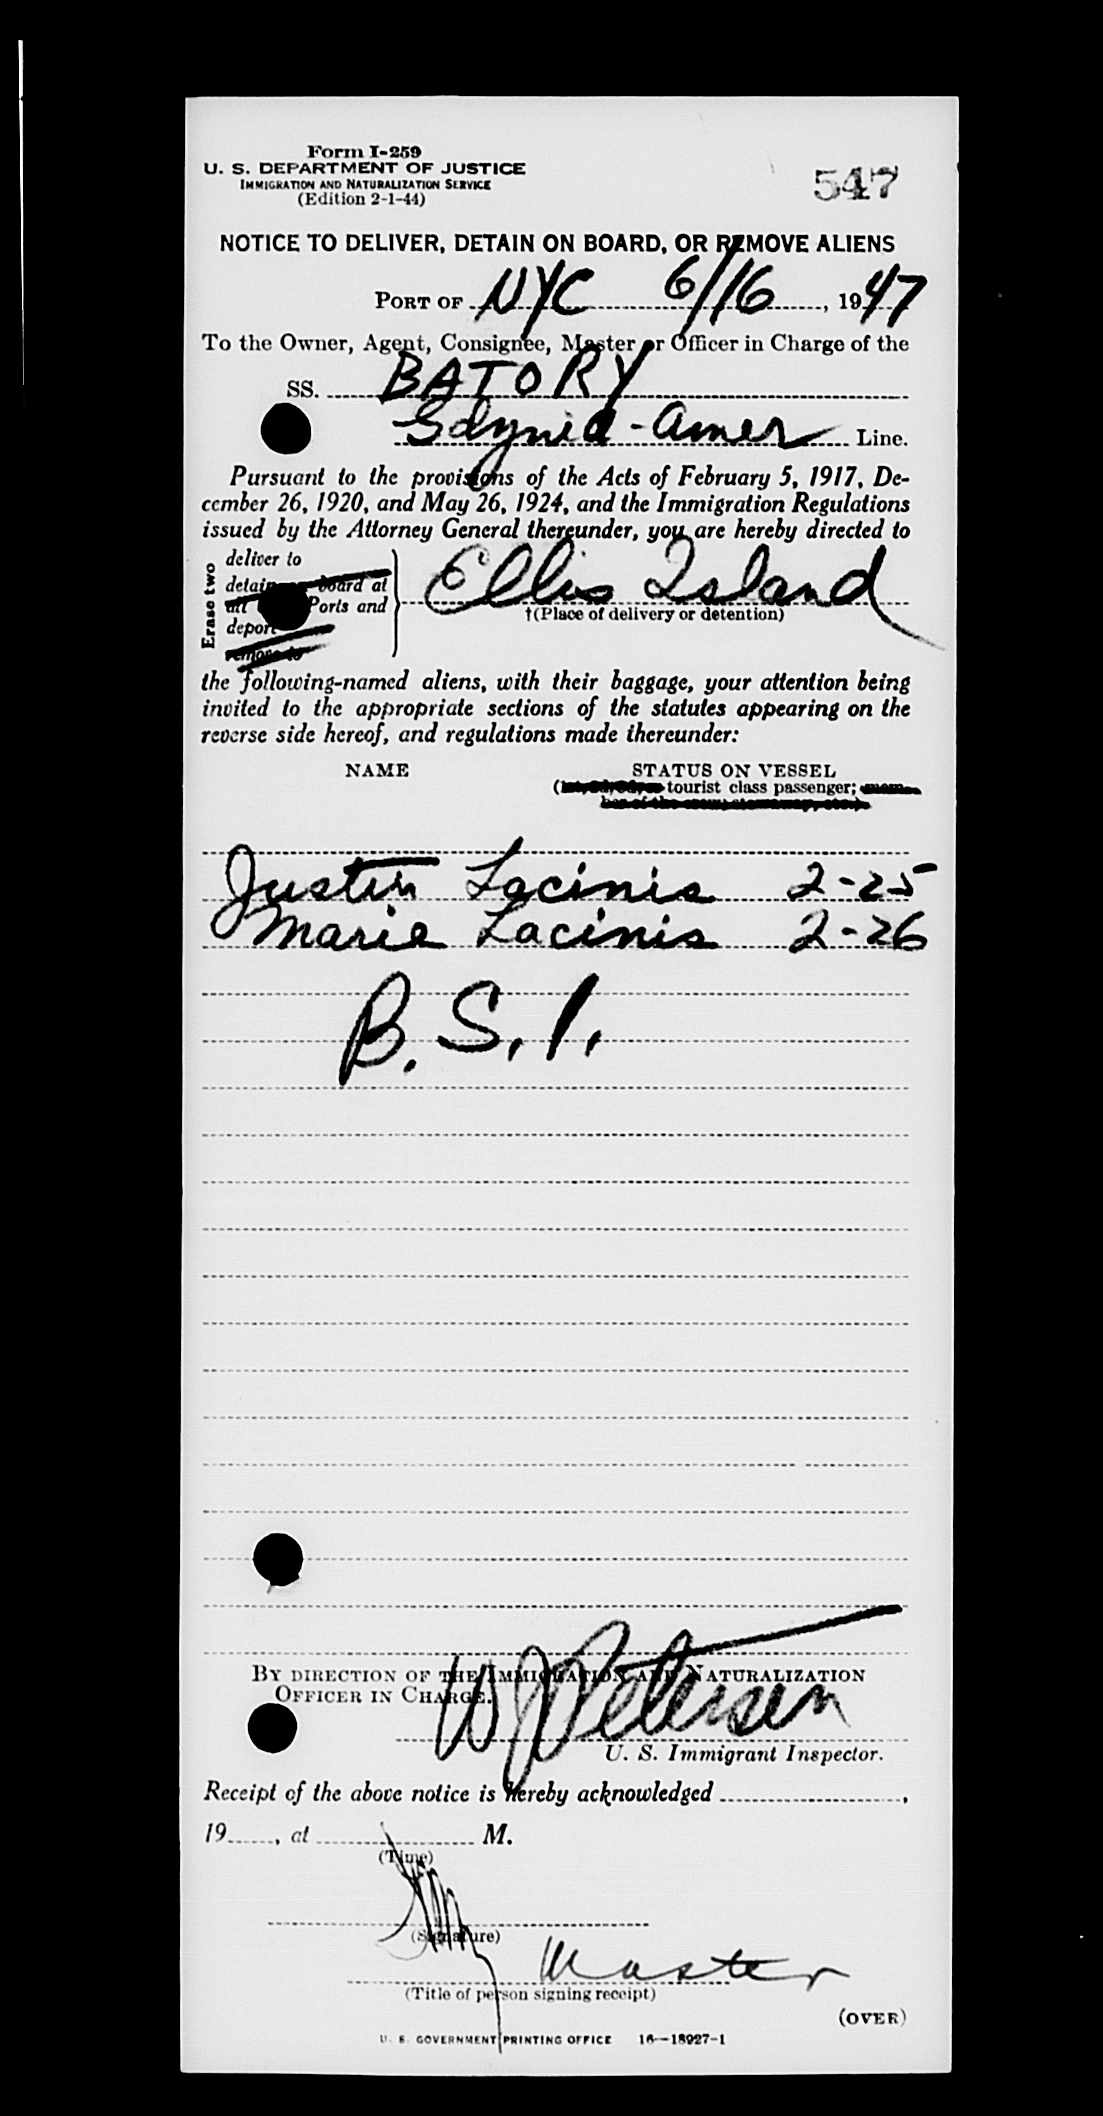 Form I-259
U. S. DEPARTMENT OF JUSTICE
IMMIGRATION AND NATURALIZATION SERVICE
(Edition 2-1-44)
547
NOTICE TO DELIVER, DETAIN ON BOARD, OR REMOVE ALIENS
PORT OF NYC 6/16, 1947
To the Owner, Agent, Consignee, Master or Officer in Charge of the
SS. BATORY
Gdynia-Amer Line.
Pursuant to the provisions of the Acts of February 5, 1917, De-
cember 26, 1920, and May 26, 1924, and the Immigration Regulations
issued by the Attorney General thereunder, you are hereby directed to
Erase two
deliver to
detain on board at
all Ports and
deport
remove to
Ellis Island
†(Place of delivery or detention)
the following-named aliens, with their baggage, your attention being
invited to the appropriate sections of the statutes appearing on the
reverse side hereof, and regulations made thereunder:
NAME STATUS ON VESSEL
tourist class passenger; mem-
ber of the crew; stowaway, etc.)
Justin Lacinis 2-25
Marie Lacinis 2-26
B. S. I.
BY DIRECTION OF THE IMMIGRATION AND NATURALIZATION
OFFICER IN CHARGE.
W J Petersen
U. S. Immigrant Inspector.
Receipt of the above notice is hereby acknowledged ,
19 , at M.
(Time)
(Signature)
Master
(Title of person signing receipt)
(OVER)
U. S. GOVERNMENT PRINTING OFFICE 16—18927-1